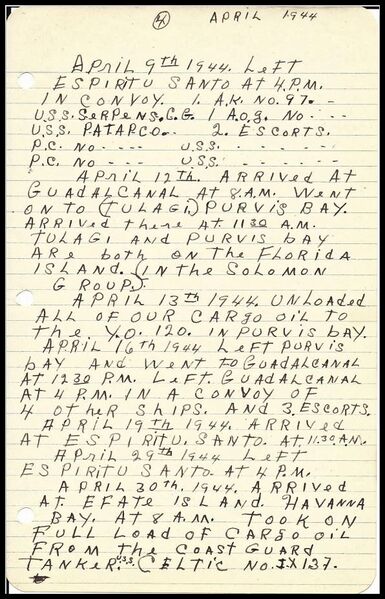 4 APRIL 1944
APRIL 9TH 1944. LEFT
ESPIRITU SANTO AT 4 P.M.
IN CONVOY. 1. A.K. NO. 97. --
U.S.S. SERPENS. C.G. 1 A.O.G. NO. ----
U.S.S. PATAPCO.-- 2. ESCORTS.
P.C. NO ---- U.S.S. ------
P.C. NO. ---- U.S.S. ------
APRIL 12TH. ARRIVED AT
GUADALCANAL AT 8 A.M. WENT
ON TO (TULAGI,) PURVIS BAY.
ARRIVED THERE AT 11 30 A.M.
TULAGI AND PURVIS BAY
ARE BOTH ON THE FLORIDA
ISLAND. (IN THE SOLOMON
GROUP)
APRIL 13TH 1944. UNLOADED
ALL OF OUR CARGO OIL TO
THE Y.O. 120. IN PURVIS BAY.
APRIL 16TH 1944 LEFT PURVIS
BAY AND WENT TO GUADALCANAL
AT 12 30 P.M. LEFT GUADALCANAL
AT 4 P.M. IN A CONVOY OF
4 OTHER SHIPS. AND 3 ESCORTS.
APRIL 19TH 1944. ARRIVED
AT ESPIRITU. SANTO. AT. 11.30 A.M.
APRIL 29TH 1944 LEFT
ESPIRITU SANTO AT 4 P.M.
APRIL 30TH. 1944. ARRIVED
AT. EFATE ISLAND. HAVANNA
BAY. AT 8 A.M. TOOK ON
FULL LOAD OF CARGO OIL
FROM THE COAST GUARD
TANKER. U.S.S. CELTIC NO. IX 137.